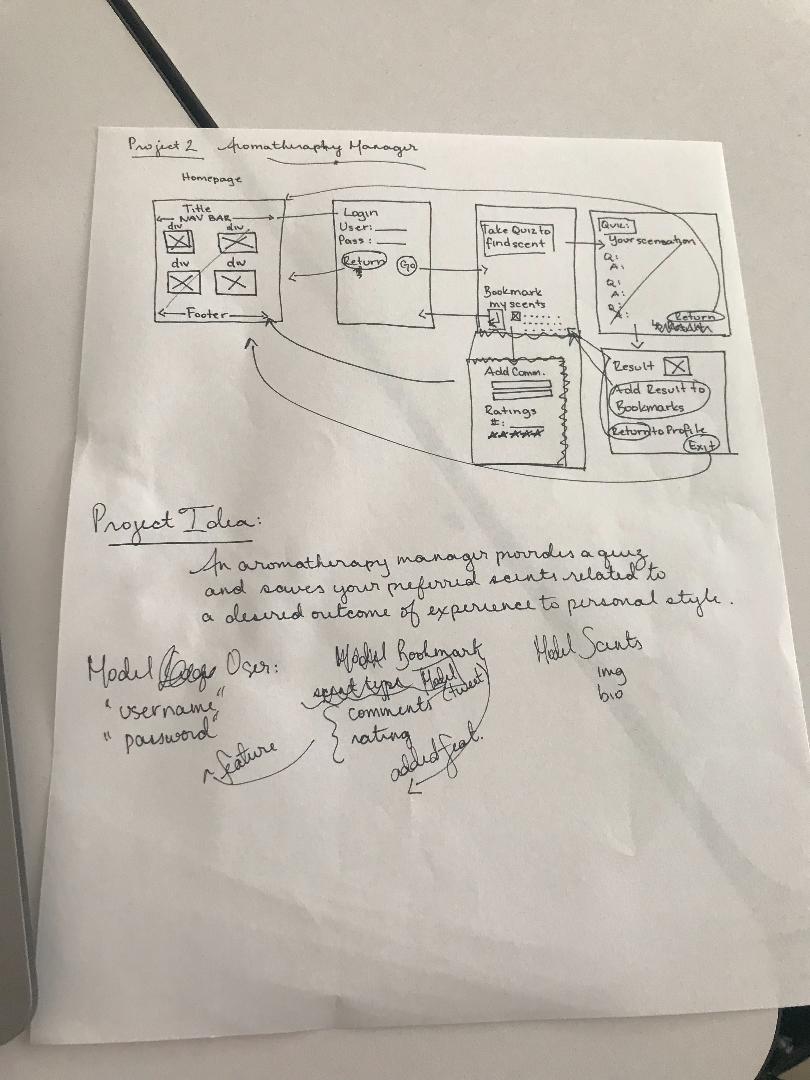 Project 2 Aromatheraphy Manager
Homepage
Title
NAV BAR
div div
div div
Footer
Login
User:
Pass:
Return Go
Take Quiz to
find scent
Bookmark
my scents
Add Comm.
Ratings
#:
Quiz:
Your scensation
Q:
A:
Q:
A:
Q:
A:
Return
Result
Add Result to
Bookmarks
Return to Profile
Exit
Project Idea:
An aromatherapy manager provides a quiz
and saves your preferred scents related to
a desired outcome of experience to personal style.
Model User:
"username"
"password"
feature
Model Bookmark
scent type Model
comments (tweet)
rating
added feat.
Model Scents
img
bio